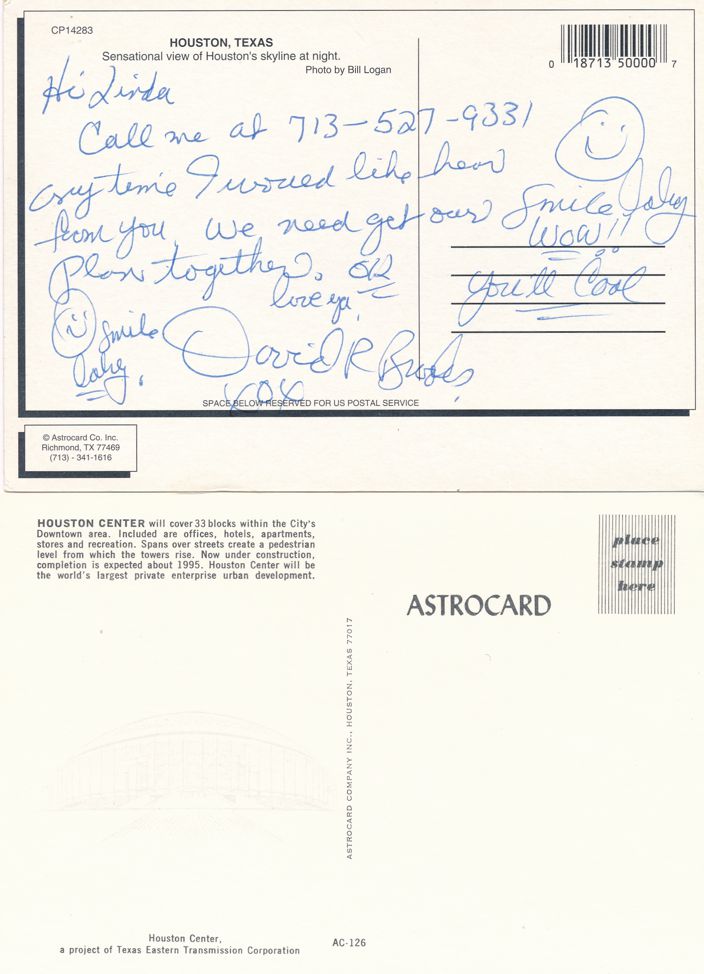 CP14283
HOUSTON, TEXAS
Sensational view of Houston's skyline at night.
Photo by Bill Logan
0 18713 50000 7
Hi Linda
Call me at 713-527-9331
any time I would like hear
from you. We need get our
Plan together. OK
love ya,
Smile
baby.
David R
XOX
Smile baby
WOW!!
You'll Cool
SPACE BELOW RESERVED FOR US POSTAL SERVICE
© Astrocard Co. Inc.
Richmond, TX 77469
(713) - 341-1616
HOUSTON CENTER will cover 33 blocks within the City's
Downtown area. Included are offices, hotels, apartments,
stores and recreation. Spans over streets create a pedestrian
level from which the towers rise. Now under construction,
completion is expected about 1995. Houston Center will be
the world's largest private enterprise urban development.
place
stamp
here
ASTROCARD
ASTROCARD COMPANY INC., HOUSTON, TEXAS 77017
Houston Center,
a project of Texas Eastern Transmission Corporation
AC-126